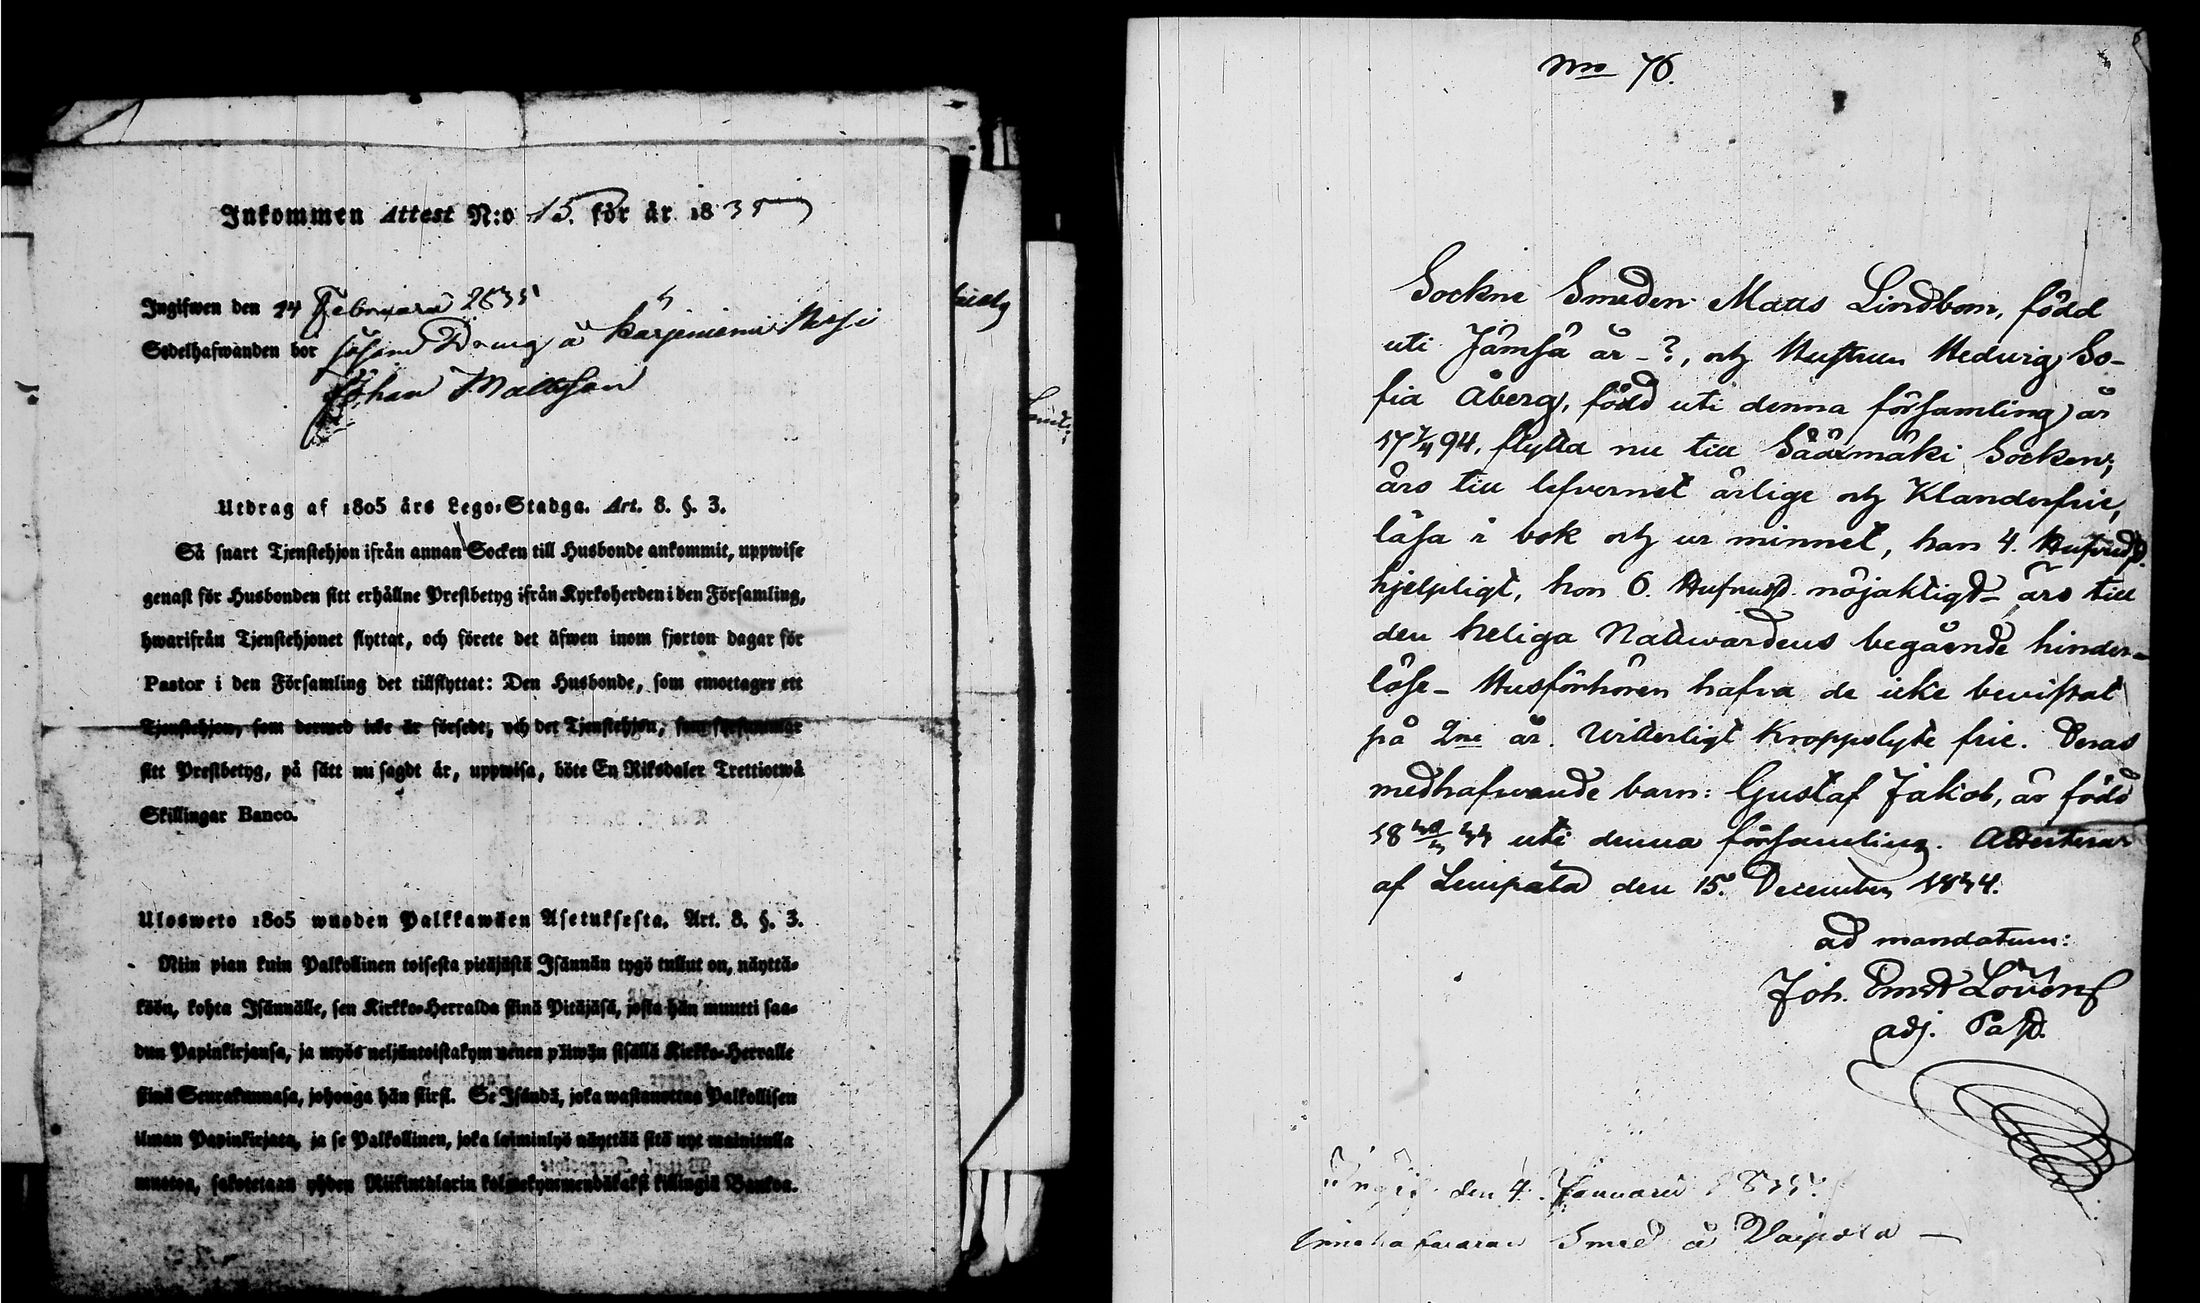 Inkommen Attest N:o 15. för år 1835
Ingifwen den 14 Februarii 1835
Sedelhafwanden bor såsom Dräng å Karjeniemi
Johan Mattsson
Utdrag af 1805 års Lego-Stadga. Art. 8. §. 3.
Så snart Tjenstehjon ifrån annan Socken till Husbonde ankommit, uppwise
genast för Husbonden sitt erhållne Prestbetyg ifrån Kyrkoherden i den Församling,
hwarifrån Tjenstehjonet flyttat, och förete det äfwen inom fjorton dagar för
Pastor i den Församling det tillflyttat: Den Husbonde, som emottager ett
Tjenstehjon, som dermed icke är försedt, och det Tjenstehjon, som försummar
sitt Prestbetyg, på sätt nu sagdt är, uppwisa, böte En Riksdaler Trettiotwå
Skillingar Banco.
Ulosweto 1805 wuoden Palkkawäen Asetuksesta. Art. 8. §. 3.
Niin pian kuin Palkollinen toisesta pitäjästä Isännän tygö tullut on, näyttä-
köön, kohta Isännälle, sen Kirkko-Herralda siinä Pitäjäsä, josta hän muutti saa-
dun Papinkirjansa, ja myös neljäntoistakymmenen päiwän sisällä Kirkko-Herralle
siinä Seurakunnasa, johonga hän siirsi. Se Isändä, joka wastanottaa Palkollisen
ilman Papinkirjata, ja se Palkollinen, joka laiminlyö näyttää sitä nyt mainitulla
muotoa, sakotetaan yhden Riikintalarin kolmekymmendäkaksi killingiä Bankoa.
Nro 76.
Sockne Smeden Mats Lindbom, född
uti Jämsä år - ?, och Hustrun Hedvig So-
fia Åberg, född uti denna församling år
17 7/4 94, flytta nu till Sääxmäki Socken;
äro till lefvernet ärlige och Klanderfrie,
läsa i bok och ur minnet, han 4. Hufvudst.
hjelpligt, hon 6. Hufvudst. nöjaktigt - äro till
den heliga Nattwardens begående hinder-
löse - Husförhören hafva de icke bevistat
på 2ne år. Witterligt Kroppslyte frie. Deras
medhafwande barn: Gustaf Jakob, är född
uti denna församling. Attesterar
af Lempälä den 15. December 1834.
ad mandatum:
Joh. Ernst Lövenf
adj. Past.
Ingif. den 4. Januarii 1835.
Innehafvaren Smed å Voipala